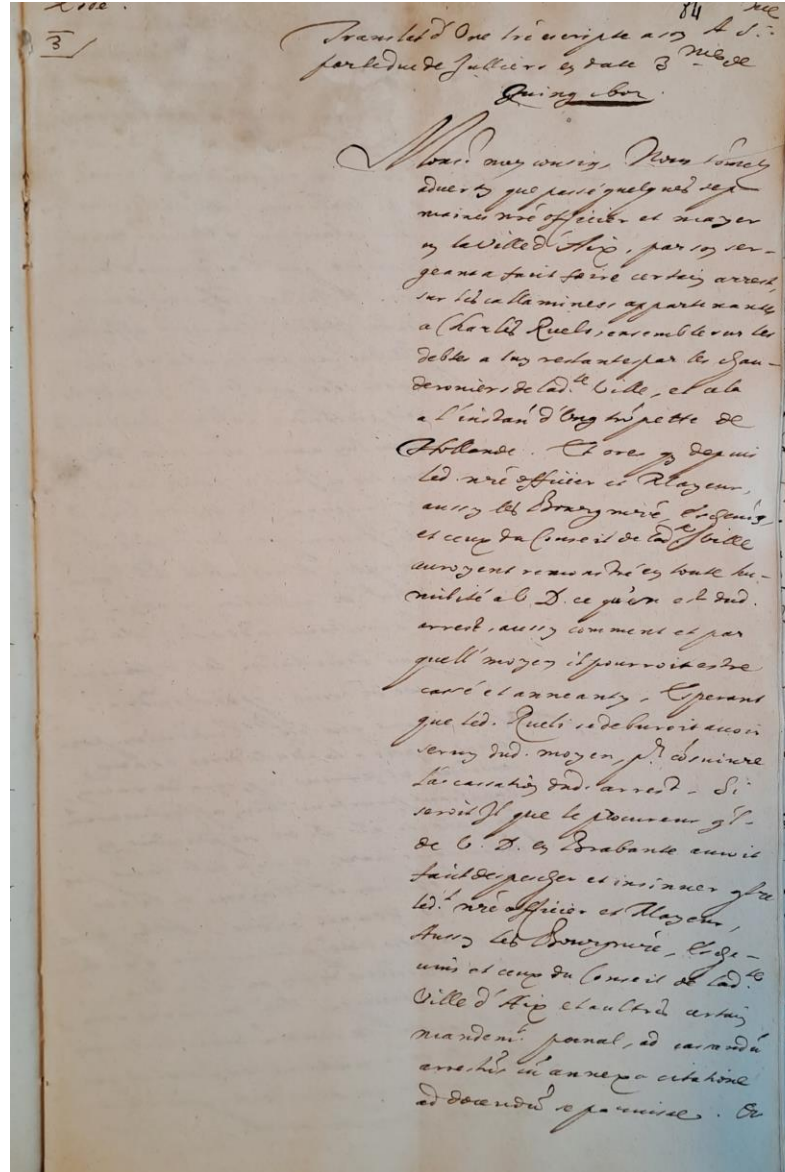 84
3
Translat d'Une lre escripte a son A. S.
par le duc de Julliers en date 3 de
Monsr mon cousin, Nous sommes
adverty que passé quelques sep-
maines nre officier et mayer
en la Ville d'Aix, par son ser-
geant a fait faire certain arrest,
sur les callamines appartenantes
a Charles Ruels, ensemble sur les
debtes a luy restantes par les chau-
deroniers de lad.te Ville, et cela
a l'instan d'Ung trompette de
Hollande. Et ores que depuis
led. nre officier et Mayeur,
aussy les Bourgmre, Eschevins,
et ceux du Conseil de lad.te Ville
auroyent remonstré en toute hu-
milité a V. D. ce qu'en est dud.
arrest, aussy comment et par
quell moyen il pourroit estre
cassé et anneanty, Esperant
que led. Ruels se deburoit avoir
servy dud. moyen, pr
la cassation dud. arrest. Si
seroit Il que le Procureur gl.
de V. D. en Brabante auroit
fait despescher et insinuer
led.t nre officier et Mayeur,
Aussy les Bourgmre, Esche-
vins et ceux du Conseil de lad.te
Ville d'Aix et aultres certain
mandemt poenal, ad cassandu
arrestu cu annexa citatione
ad docendu se paruisse. Et